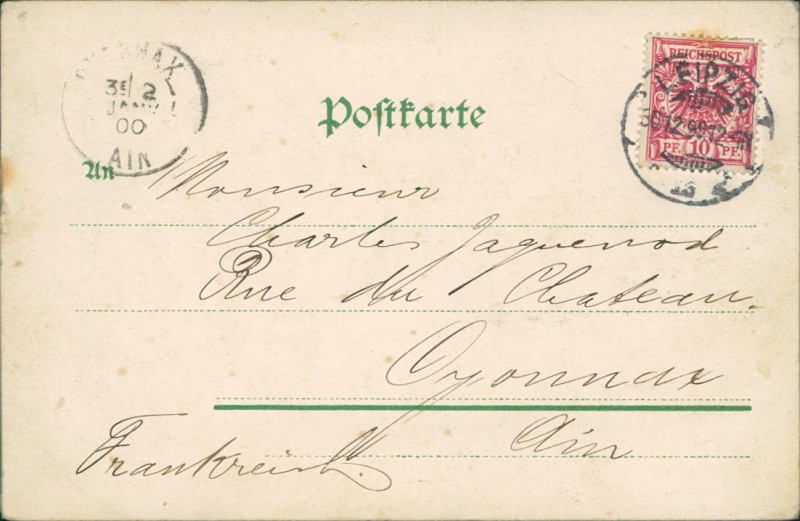 OYONNAX
3E 2
JANV
00
AIN
REICHSPOST
PF. 10 PF.
LEIPZIG
30.12.99.12-
13
Postkarte
An Monsieur
Charles Jaquenod
Rue du Chateau.
Oyonnax
Ain
Frankreich